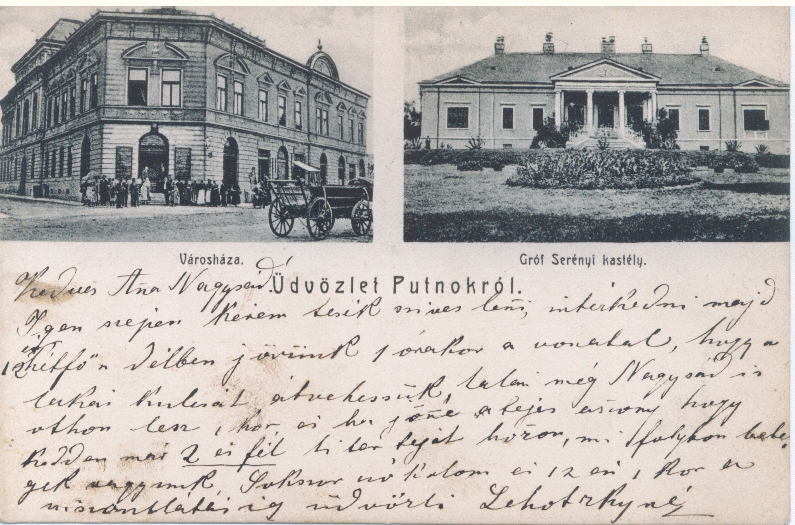 Városháza.
Gróf Serényi kastély.
Üdvözlet Putnokról.
Kedves Ana Nagysád!
Igen szépen kérem tesék szives leni, intézkedni majd
hétfőn délben jövünk 1 órakor a vonatal, hogy a
lakás kulcsát átvehessük, talán még Nagysád is
othon lesz 1 kor, és ha jöne a tejes aszony hogy
kedden már 2 és fél liter tejet hozon, mi folyton bete-
gek vagyunk. Sokszor csókolom és 12 én 1 kor a
viszontlátásig üdvözli Lehotzkyné